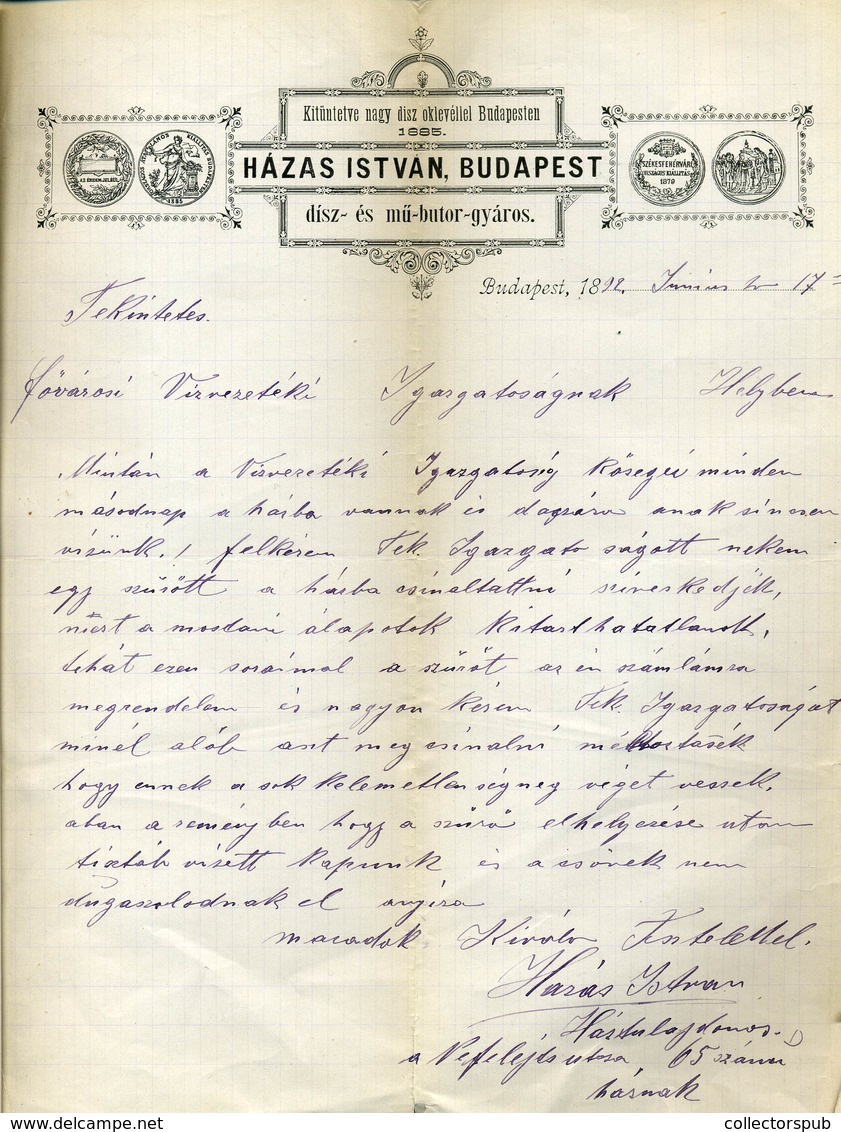 Kitüntetve nagy disz oklevéllel Budapesten
1885.
HÁZAS ISTVÁN, BUDAPEST
dísz- és mű-butor-gyáros.
AZ ÉRDEM JELÉÜL
1885
SZÉKESFEHÉRVÁRI
ORSZÁGOS KIÁLLITÁS
1879
Budapest, 1892. Junius hó 17-
Tekintetes.
Fővárosi Vizvezetéki Igazgatoságnak Helyben
Mintán a Vizvezetéki Igazgatóság közegei minden
másodnap a házba vannak és daczára anak sincsen
vizünk.! felkérem Tek. Igazgato ságott nekem
egy szűrőtt a házba csináltattni sziveskedjék,
mert a mostani álapotok kitarthatatlanok,
tehát ezen soraimal a szűrőt az én számlámra
megrendelem és nagyon kérem Tek. Igazgatoságát
minél alőb ast megcsinalni méltoztasék
hogy ennek a sok kelemetlenségneg véget vessek,
aban a reményben hogy a szűrő elhelyezése utan
tisztáb vizett kapunk és a csövek nem
dugaszolodnak el anyira
maradok Kiváló Tistelettel.
Házás Istvan
Háztulajdonos.
a Nefelejts utcza 65 számu
háznak
collectorspub